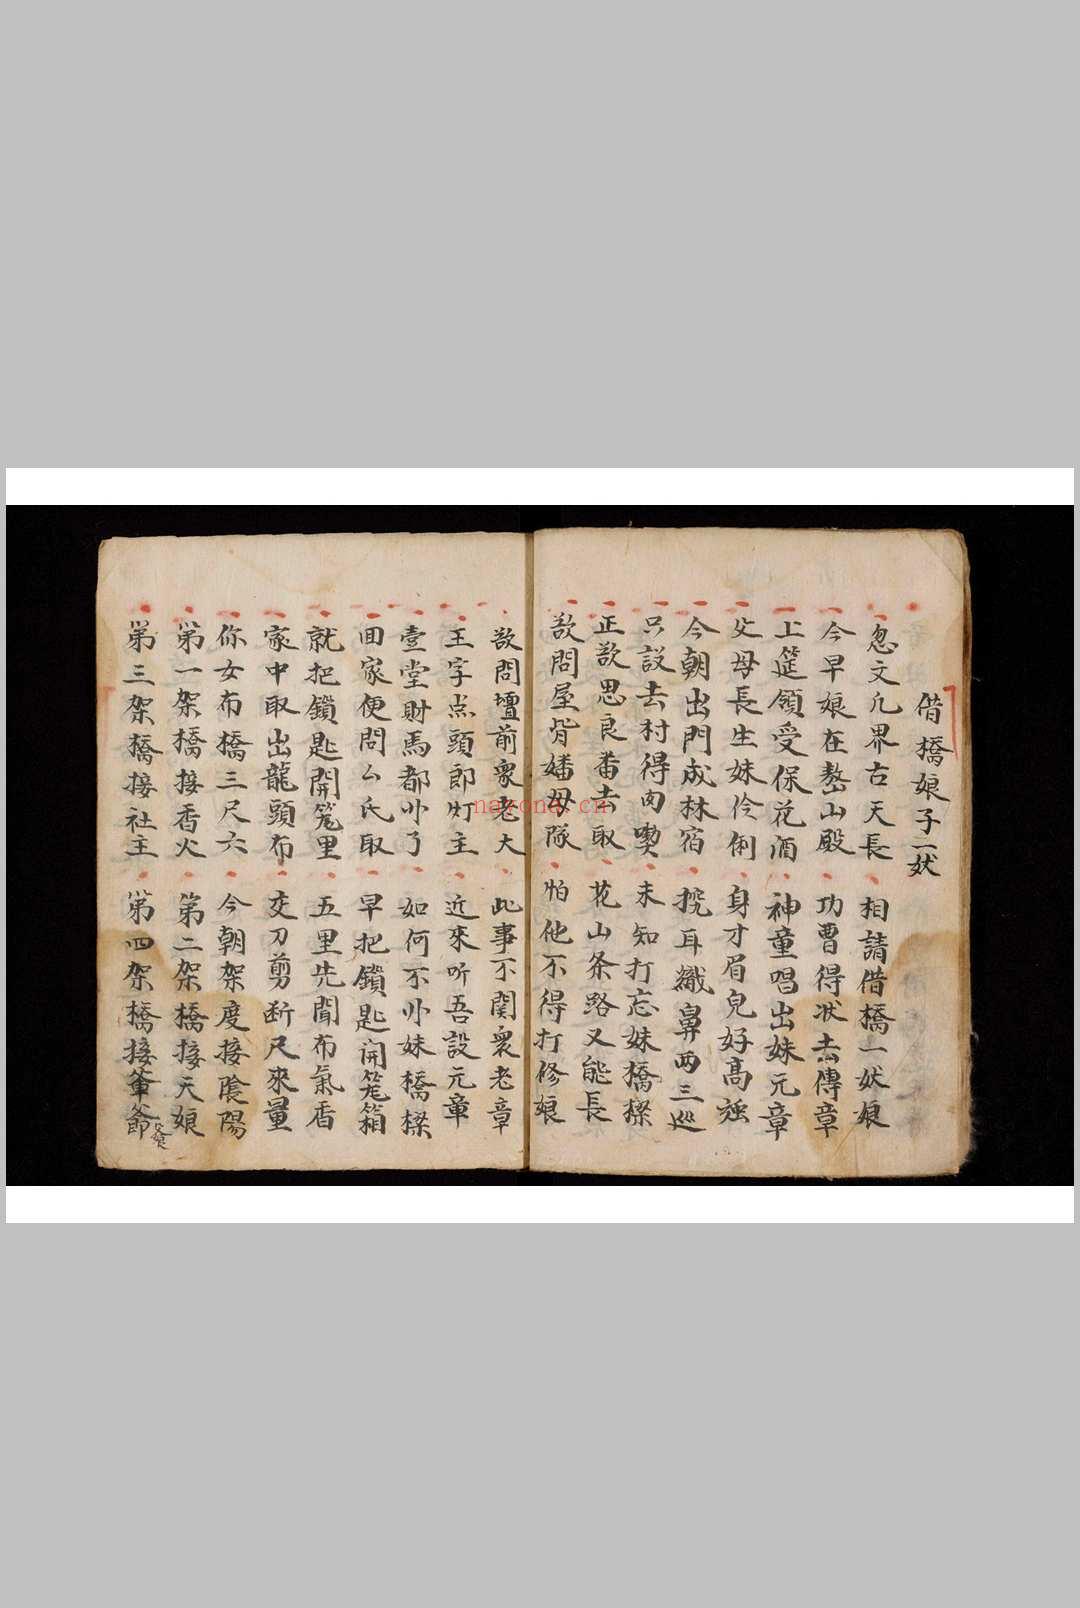 借橋娘子二妖
忽文凢界古天長 相請借橋一妖娘
今早娘在嶅山殿 功曹得状去傳章
上筵領受保花酒 神童唱出妹元章
父母長生妹伶俐 身才眉皃好高強
今朝出門成林宿 挩耳纖鼻两三巡
只説去村得肉喫 未知打忘妹橋樑
正欲思良番去取 花山条路又能長
欲問屋背嬏母隊 怕他不得打修娘
欲問壇前衆老大 此事不関衆老章
王字点頭郎灯主 近來听吾設元章
壹堂財馬都卟了 如何不卟妹橋樑
囬家便問厶氏取 早把鎖匙開笼箱
就把鎖匙開笼里 五里先聞布氣香
家中取出龍頭布 交刀剪断尺來量
你女布橋三尺六 今朝架度接陰陽
第一架橋接香火 第二架橋接天娘
第三架橋接社主 第四架橋接爺
nayona.cn